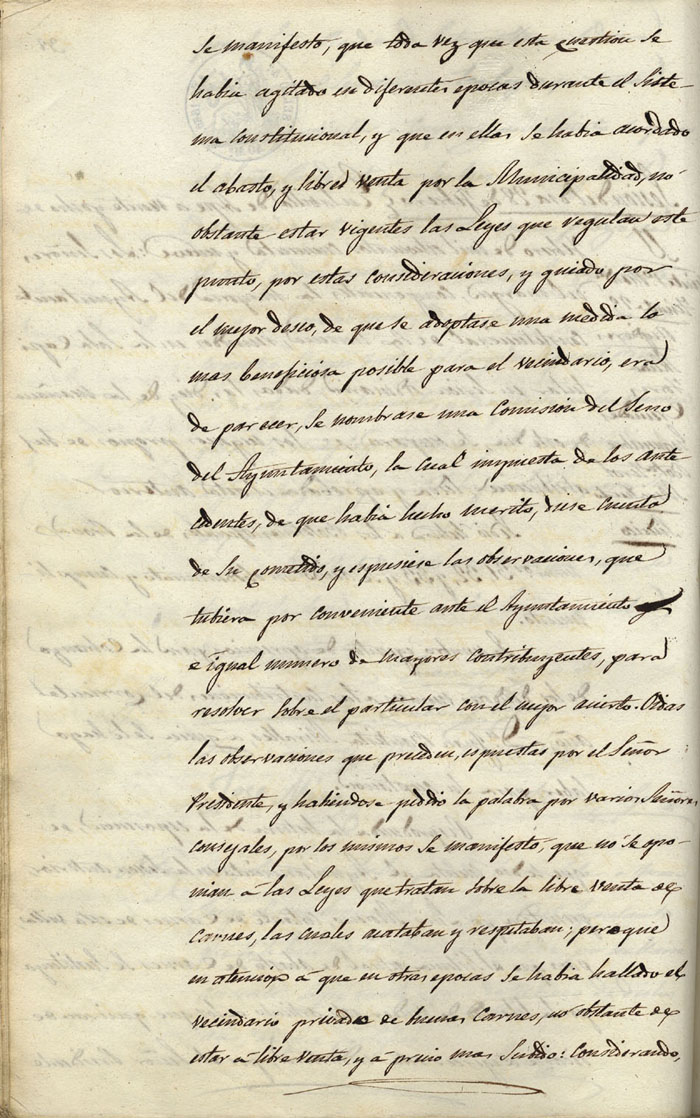 se manifesto, que toda vez que esta cuestion se
habia agitado en diferentes epocas durante el Siste-
ma Constitucional, y que en ellas se habia acordado
el abasto, y libre venta por la Municipalidad, no-
obstante estar vigentes las Leyes que regulan este
punto, por estas consideraciones, y guiado por
el mejor deseo, de que se adoptase una medida lo
mas beneficiosa posible para el vecindario, era
de parecer, se nombrase una Comision del Seno
del Ayuntamiento, la cual impuesta de los ante-
cedentes, de que habia hecho merito, diese cuenta
de su cometido, y espusiese las observaciones, que
tubiera por conveniente ante el Ayuntamiento
e igual numero de mayores contribuyentes, para
resolver sobre el particular con el mejor acierto. Oidas
las observaciones que preceden, espuestas por el Señor
Presidente, y habiendose pedido la palabra por varios Señores
consejales, por los mismos se manifesto, que no se opo-
nian á las Leyes que tratan sobre la libre venta de
Carnes, las cuales acataban y respetaban; pero que
en atencion á que en otras epocas se habia hallado el
vecindario privado de buenas Carnes, no obstante de
estar á libre venta, y á precio mas subido: Considerando,